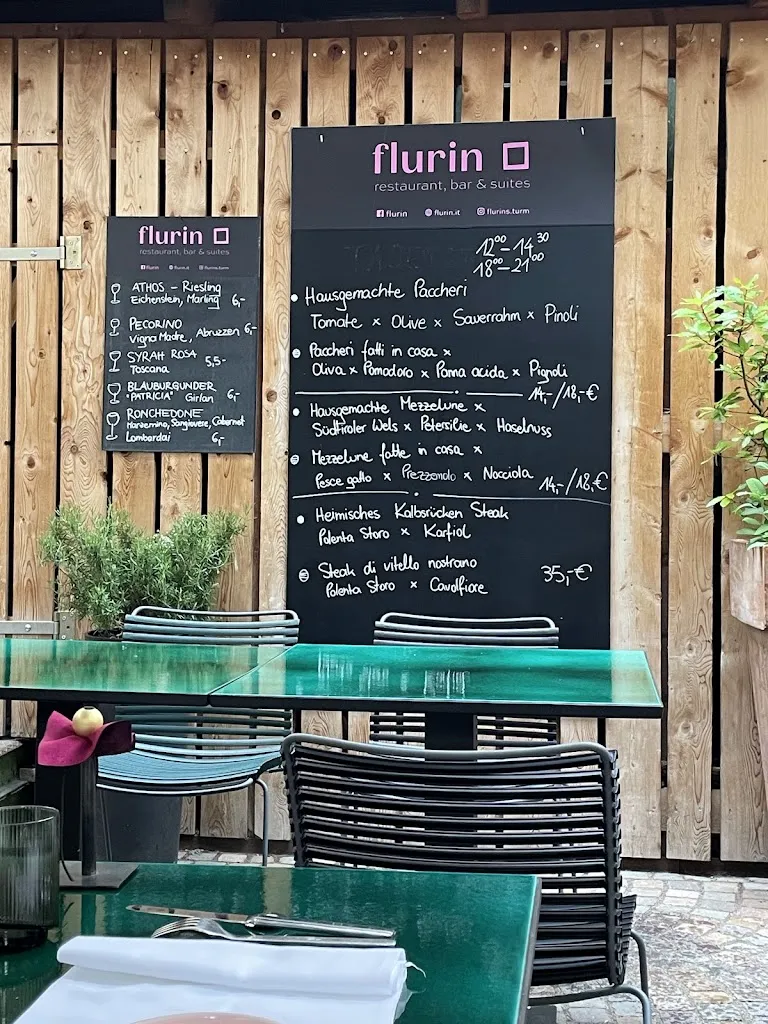 flurin
restaurant, bar & suites
flurin flurin.it flurins.turm
ATHOS - Riesling
Eichenstein, Marling 6,-
PECORINO
Vigna Madre, Abruzzen 6,-
SYRAH ROSA 5,5-
Toscana
BLAUBURGUNDER
"PATRICIA" Girlan 6,-
RONCHEDONE
Marzemino, Sangiovere, Cabernet
Lombardai 6,-
flurin
restaurant, bar & suites
flurin flurin.it flurins.turm
12⁰⁰-14³⁰
18⁰⁰-21⁰⁰
Hausgemachte Paccheri
Tomate x Olive x Sauerrahm x Pinoli
Paccheri fatti in casa x
Oliva x Pomodoro x Panna acida x Pignoli
14,-/18,-€
Hausgemachte Mezzelune x
Südtiroler Wels x Petersilie x Haselnuss
Mezzelune fatte in casa x
Pesce gatto x Prezzemolo x Nocciola 14,-/18,€
Heimisches Kalbsrücken Steak
Polenta Storo x Karfiol
Steak di vitello nostrano 35,-€
Polenta Storo x Cavolfiore